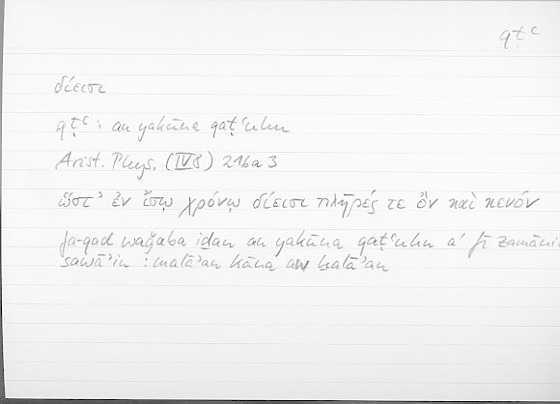 qṭʿ
δίεισι
qṭʿ : an yakūna qaṭʿuhu
Arist. Phys. (IV 8) 216a3
ὥστ’ ἐν ἴσῳ χρόνῳ δίεισι πλῆρές τε ὂν καὶ κενόν
fa-qad waǧaba iḏan an yakūna qaṭʿuhu fī zamānin
sawāʾin : malāʾan kāna aw ḫalāʾan